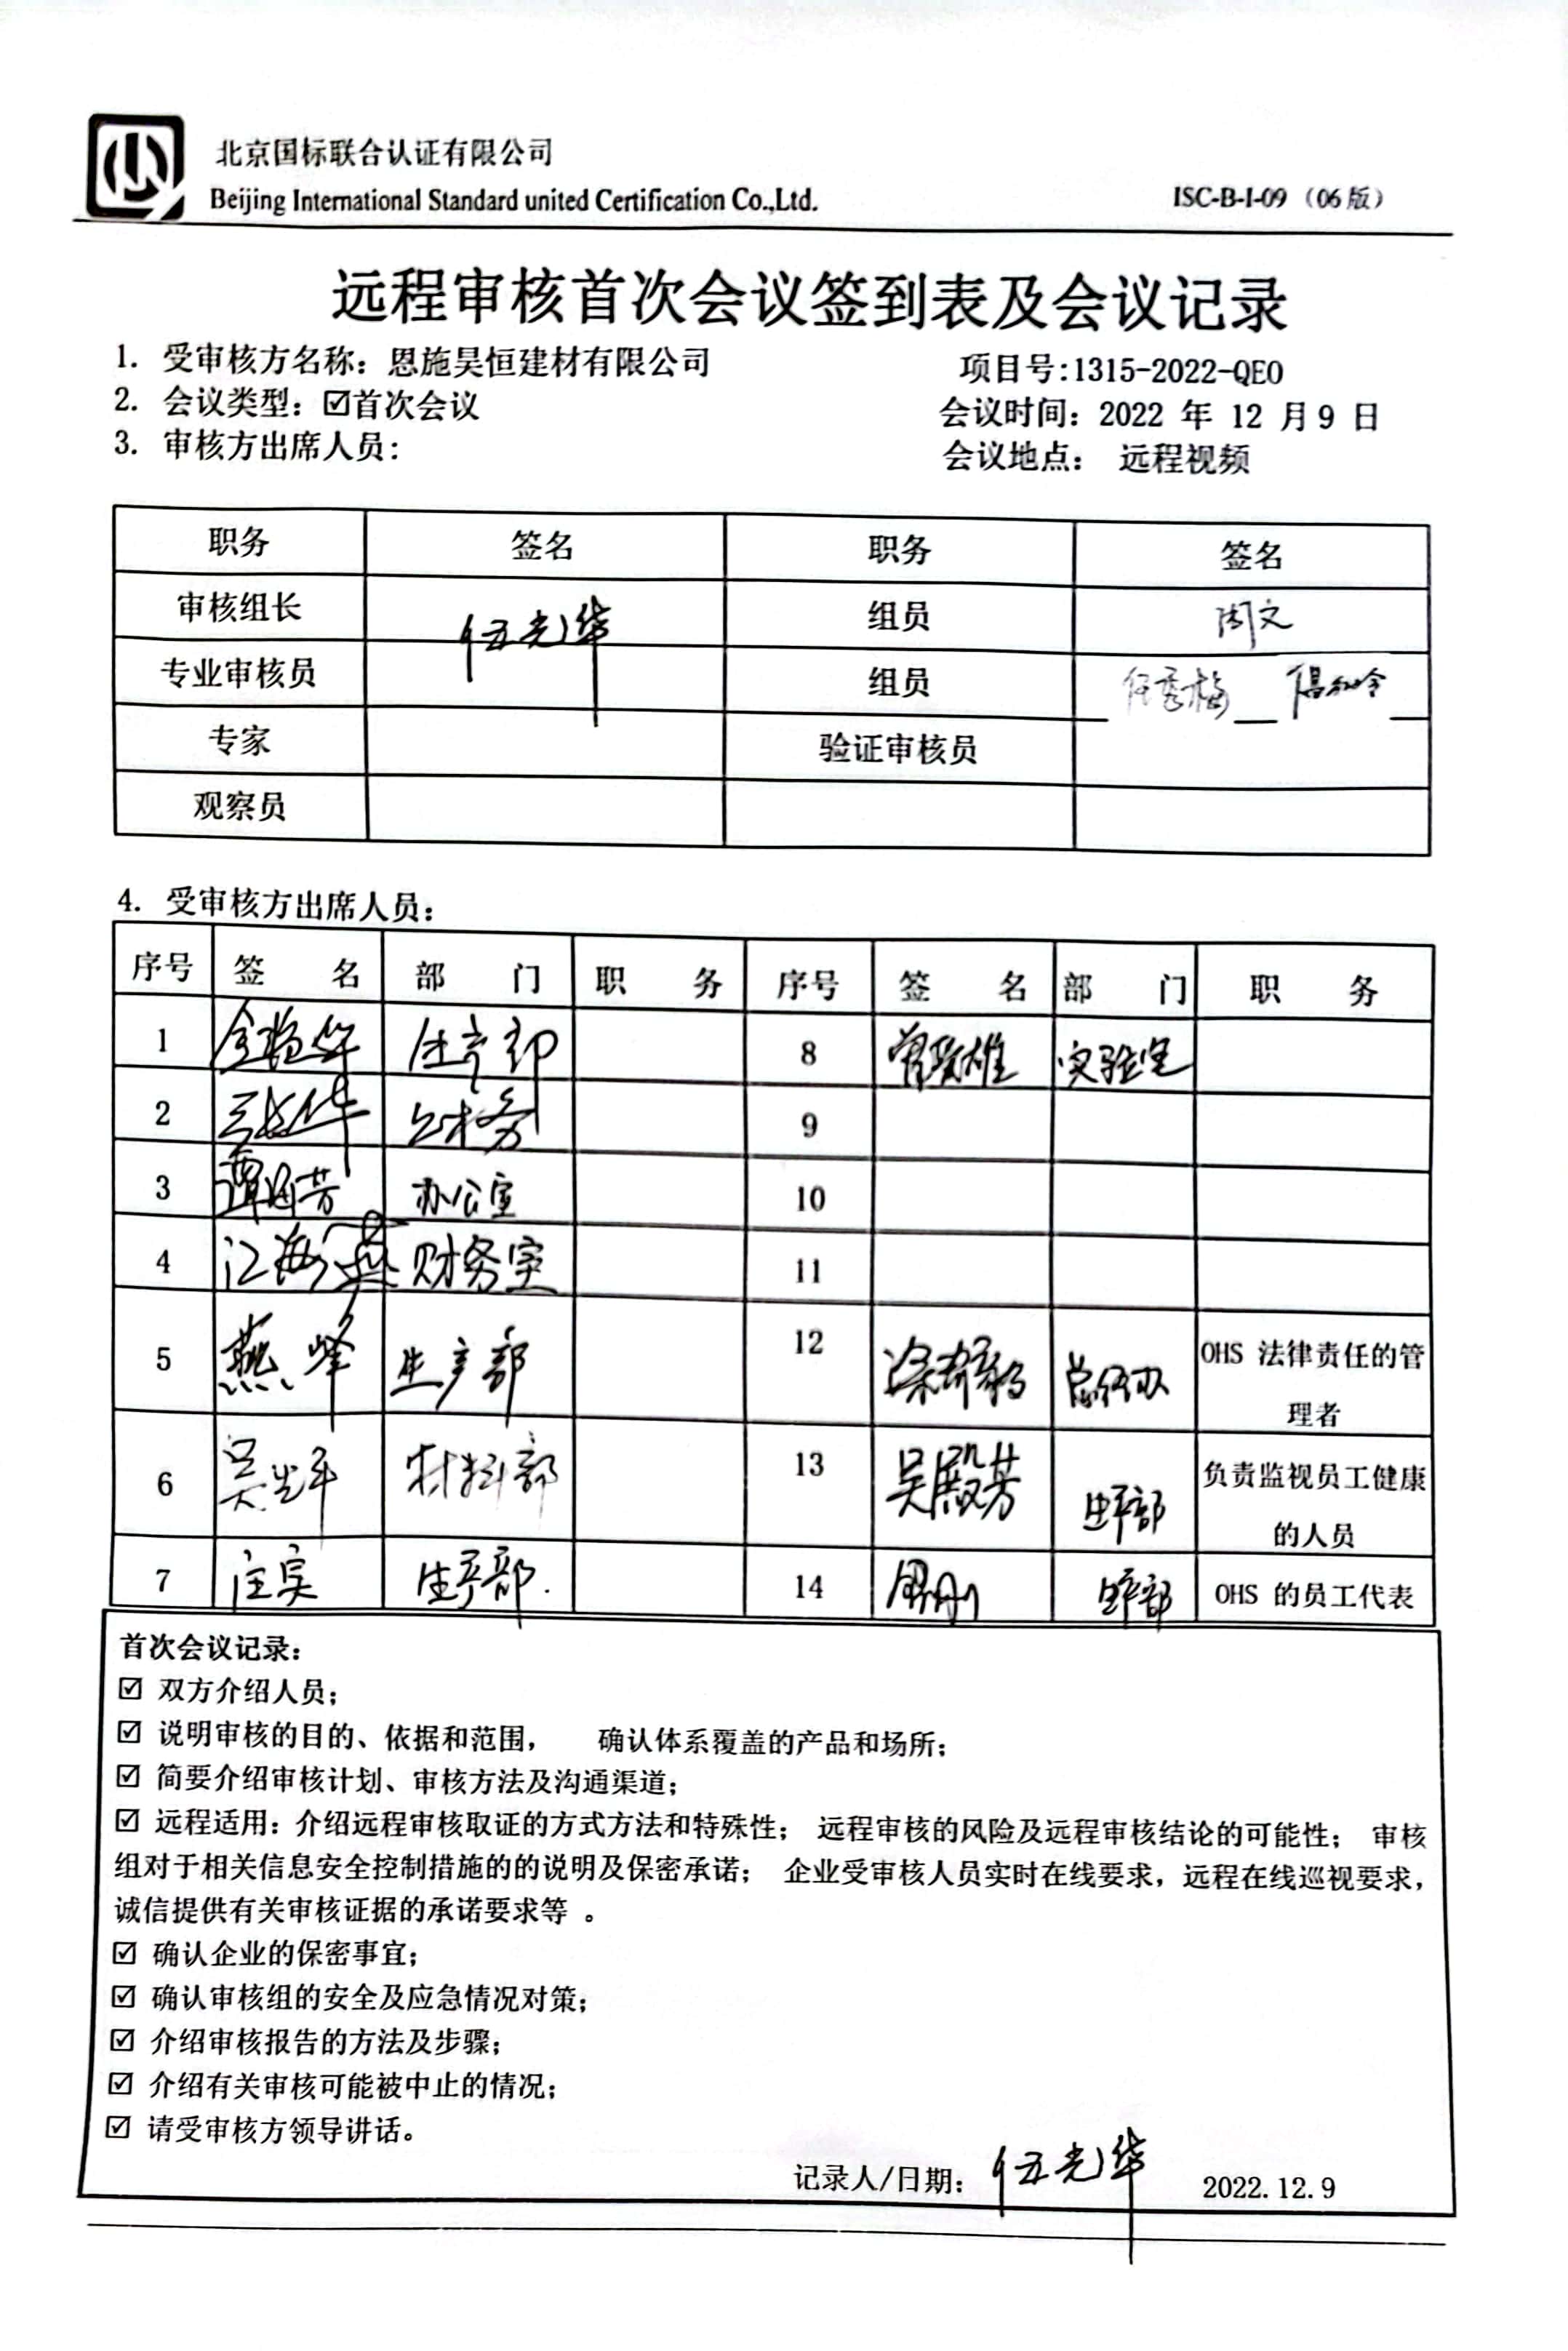 北京国标联合认证有限公司
Beijing International Standard united Certification Co.,Ltd.
ISC-B-I-09（06版）
远程审核首次会议签到表及会议记录
1. 受审核方名称：恩施昊恒建材有限公司 项目号:1315-2022-QEO
2. 会议类型：☑首次会议 会议时间：2022 年 12 月 9 日
3. 审核方出席人员： 会议地点： 远程视频
职务 签名 职务 签名
审核组长 伍光华 组员 周文
专业审核员 组员 任秀梅
专家 验证审核员
观察员
4. 受审核方出席人员：
序号 签 名 部 门 职 务 序号 签 名 部 门 职 务
1 生产部 8 实验室
2 9
3 办公室 10
4 江海燕 财务室 11
5 燕峰 生产部 12 总经办 OHS 法律责任的管
理者
6 材料部 13 吴殿芳 生产部 负责监视员工健康
的人员
7 生产部. 14 生产部 OHS 的员工代表
首次会议记录：
☑ 双方介绍人员；
☑ 说明审核的目的、依据和范围， 确认体系覆盖的产品和场所；
☑ 简要介绍审核计划、审核方法及沟通渠道；
☑ 远程适用：介绍远程审核取证的方式方法和特殊性； 远程审核的风险及远程审核结论的可能性； 审核
组对于相关信息安全控制措施的的说明及保密承诺； 企业受审核人员实时在线要求，远程在线巡视要求，
诚信提供有关审核证据的承诺要求等 。
☑ 确认企业的保密事宜；
☑ 确认审核组的安全及应急情况对策；
☑ 介绍审核报告的方法及步骤；
☑ 介绍有关审核可能被中止的情况；
☑ 请受审核方领导讲话。
记录人/日期： 伍光华 2022.12.9